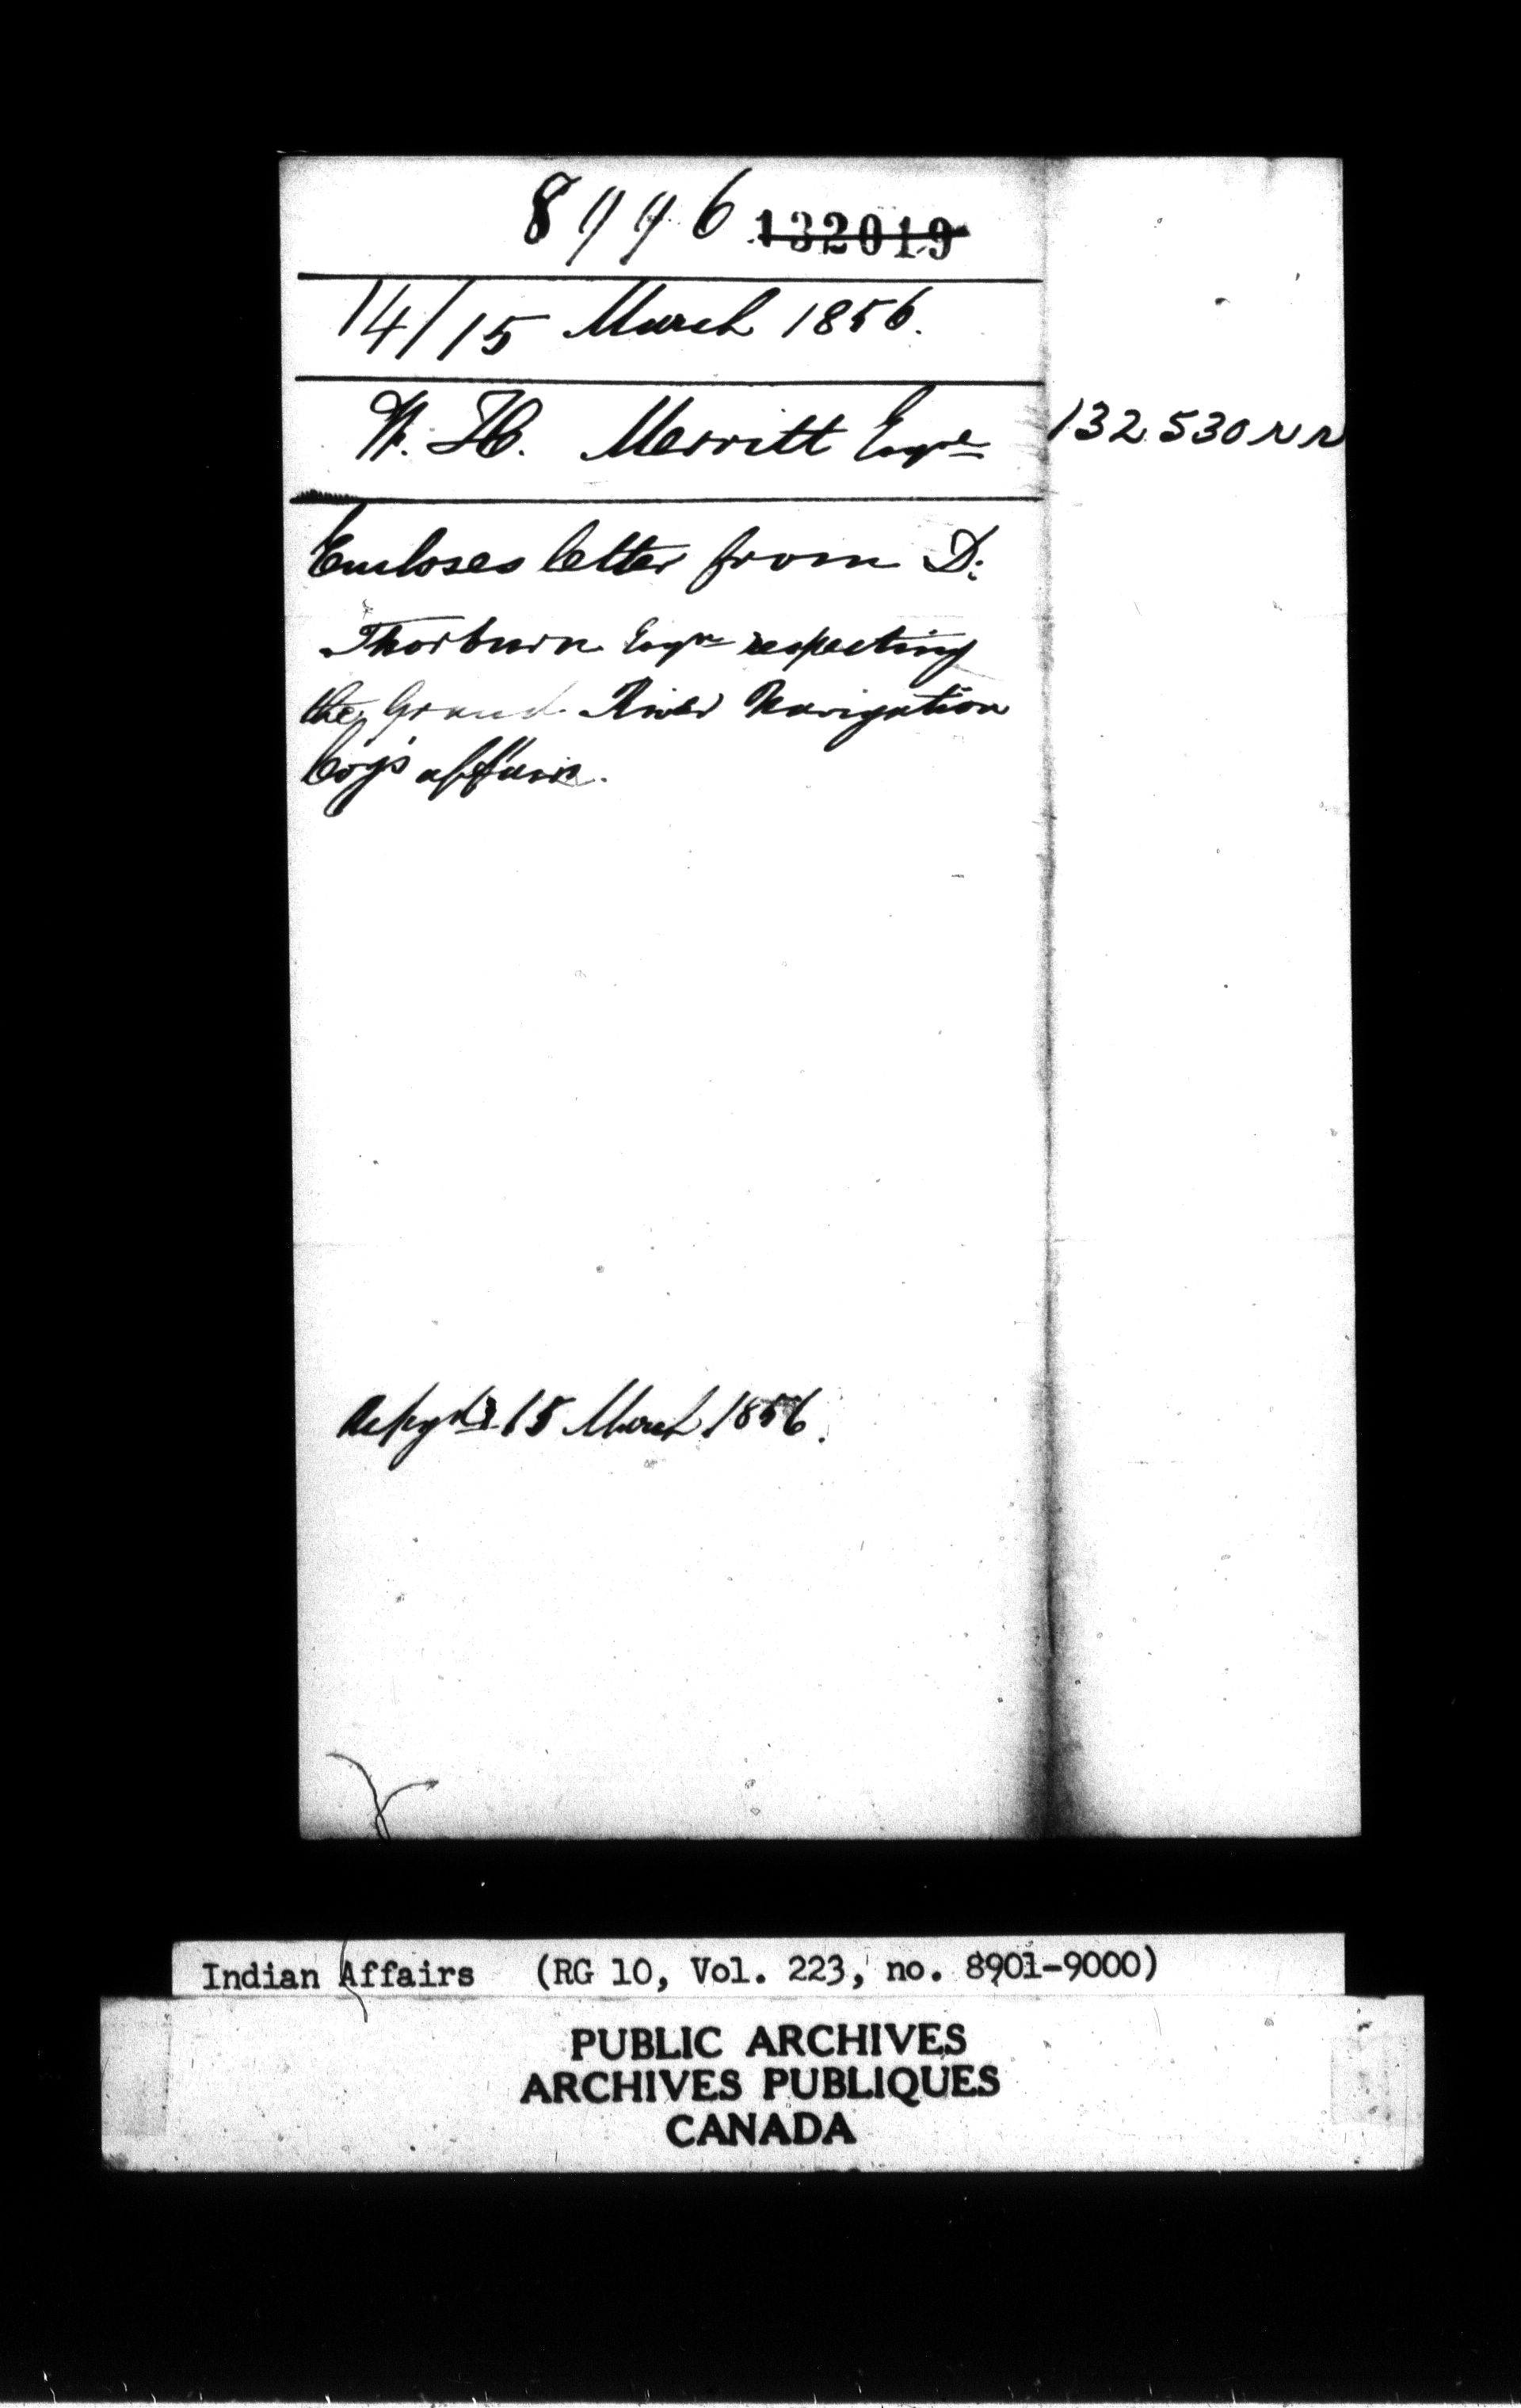 8996 132019
14/15 March 1856.
W. H. Merritt Esqre
132530 rr
Encloses letter from D.
Thorburn Esqre respecting
the Grand River Navigation
Coy's affairs.
15 March 1856.
Indian Affairs (RG 10, Vol. 223, no. 8901-9000)
PUBLIC ARCHIVES
ARCHIVES PUBLIQUES
CANADA